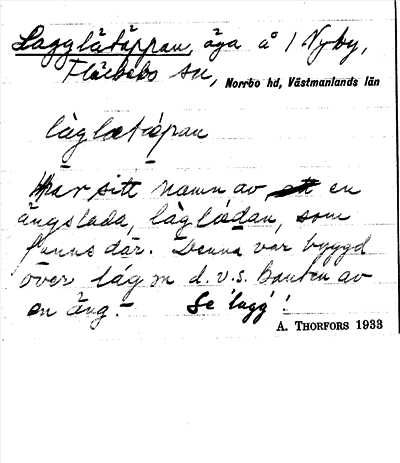 Lagglåtäppan, äga å 1 Nyby,
Fläckebo sn, Norrbo hd, Västmanlands län
làglætæpan
Har sitt namn av en
ängslada, làglædan, som
fanns där. Denna var byggd
över lágen d.v.s. kanten av
en äng. Se 'lagg'!
A. THORFORS 1933